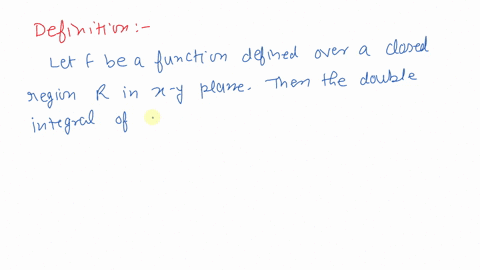 Definition :-
Let f be a function defined over a closed
region R in x-y plane. Then the double
integral of